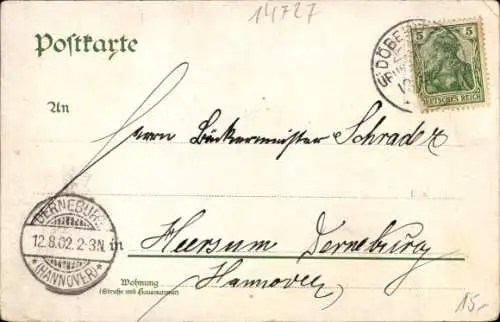 14727
Postkarte
5 5
DEUTSCHES REICH
DÖBE
12
An
Herrn Bäckermeister Schrader
DERNEBURG
12.8.02.2-3N.
*(HANNOVER)*
in Heersum Derneburg
Hannover
Wohnung
(Straße und Hausnummer)
15.-